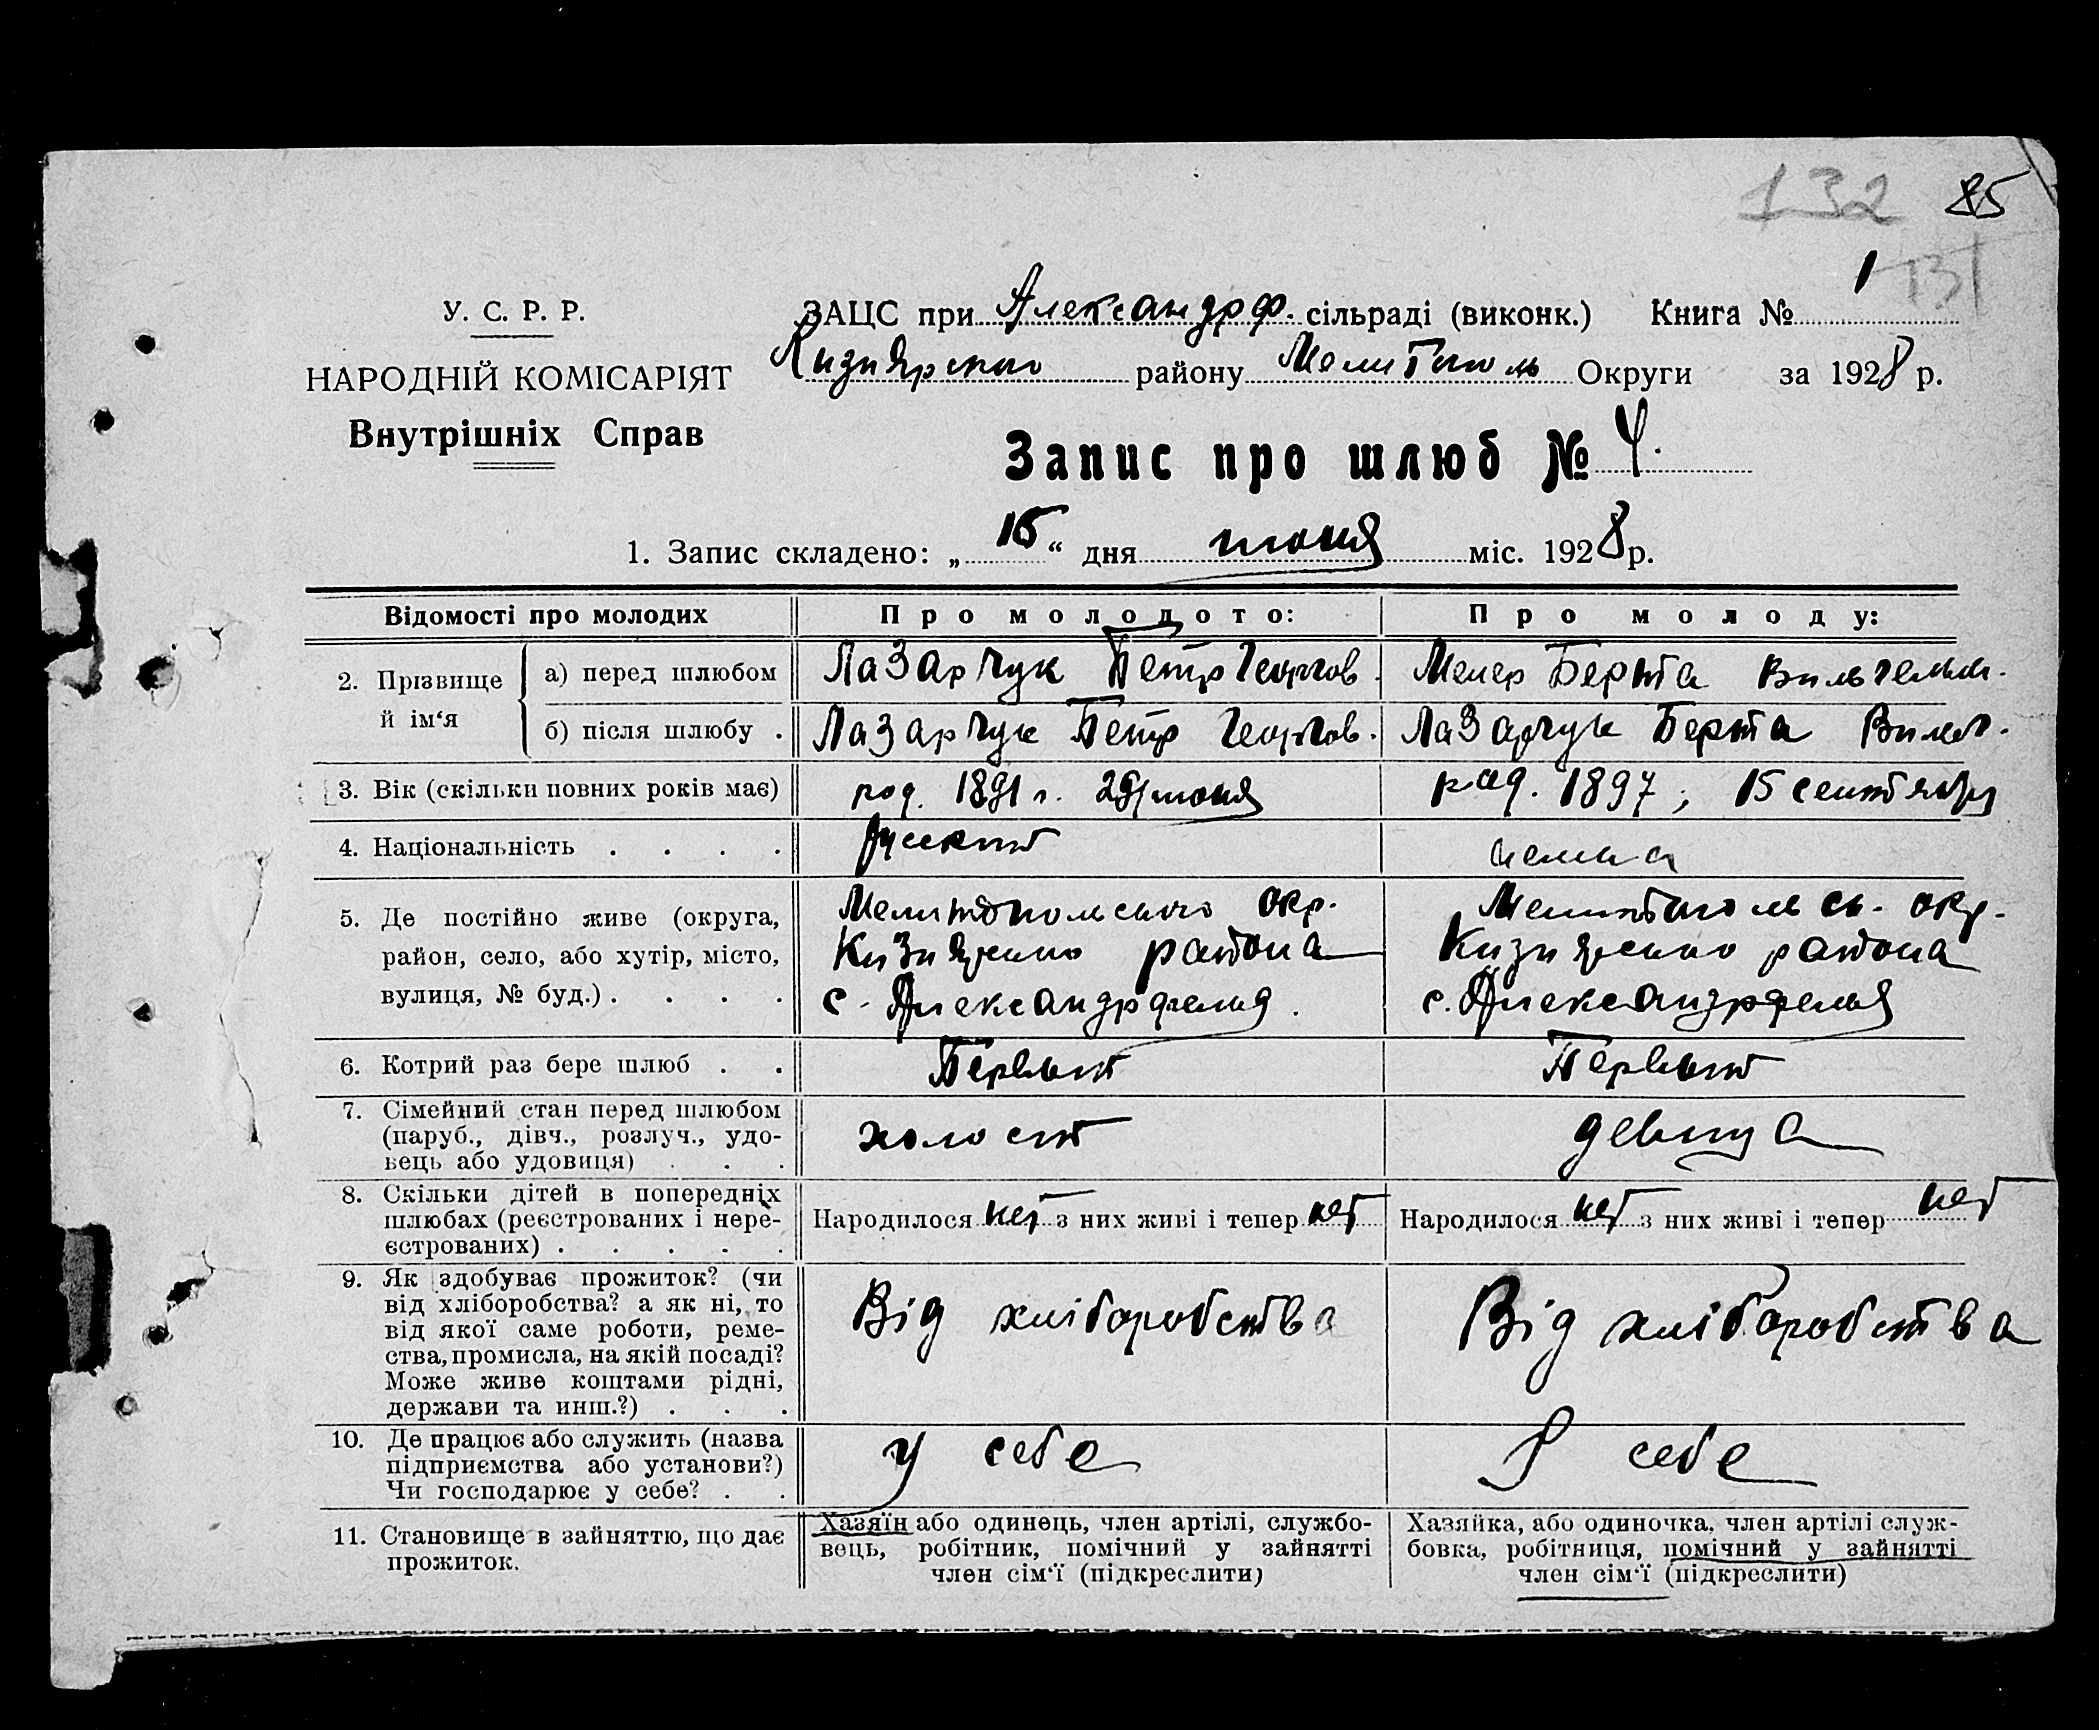 132 85
131
У. С. Р. Р.
НАРОДНІЙ КОМІСАРІЯТ
Внутрішніх Справ
ЗАЦС при Александрф. сільраді (виконк.) Книга № 1
Кизиярского району Мелитополь Округи за 1928 р.
Запис про шлюб № 4.
1. Запис складено: „15“ дня июня міс. 1928 р.
Відомості про молодих Про молодого: Про молоду:
2. Прізвище й ім‘я
а) перед шлюбом Лазарчук Петр Георгов. Мейер Берта Вильгельм.
б) після шлюбу . Лазарчук Петр Георгов. Лазарчук Берта Вильг.
3. Вік (скільки повних років має) род. 1891 г. 29 июня род. 1897; 15 сентября
4. Національність . . . . русский немка
5. Де постійно живе (округа, Мелитопольского окр. Мелитопольск. окр.
район, село, або хутір, місто, Кизиярского района Кизиярского района
вулиця, № буд.) . . . . с. Александрфельд. с. Александрфельд
6. Котрий раз бере шлюб . . Первый Первый
7. Сімейний стан перед шлюбом
(паруб., дівч., розлуч., удо- холост девица
вець або удовиця) . . .
8. Скільки дітей в попередніх
шлюбах (реєстрованих і нере- Народилося нет з них живі і тепер нет Народилося нет з них живі і тепер нет
єстрованих) . . . . .
9. Як здобуває прожиток? (чи
від хліборобства? а як ні, то Від хліборобства Від хліборобства
від якої саме роботи, реме-
ства, промисла, на якій посаді?
Може живе коштами рідні,
держави та инш.?) . . .
10. Де працює або служить (назва
підприємства або установи?) у себе У себе
Чи господарює у себе? . .
11. Становище в зайняттю, що дає
прожиток.
Хазяїн або одинець, член артілі, службо-
вець, робітник, помічний у зайнятті
член сім‘ї (підкреслити)
Хазяйка, або одиночка, член артілі служ-
бовка, робітниця, помічний у зайнятті
член сім‘ї (підкреслити)